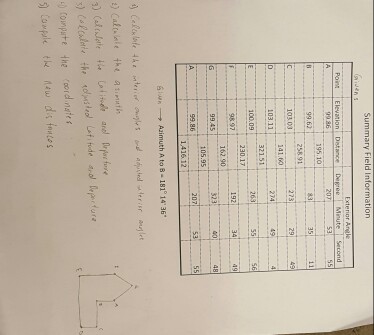 Summary Field Information
Given:
Exterior Angle
Point Elevation Distance Degree Minute Second
A 99.86 207 53 55
195.10
B 99.62 83 35 11
258.91
C 103.03 273 29 49
141.60
D 103.11 274 49 4
321.51
E 100.09 263 55 56
230.17
F 98.97 192 34 49
162.90
G 99.45 323 40 48
105.95
A 99.86 207 53 55
1,416.12
Given → Azimuth A to B = 181° 14' 36"
1) Calculate the interior angles and adjusted interior angles
2) Calculate the azimuth
3) Calculate the Latitude and Departure
4) Calculate the adjusted Latitude and Departure
5) Compute the coordinates
6) Compute the New distances